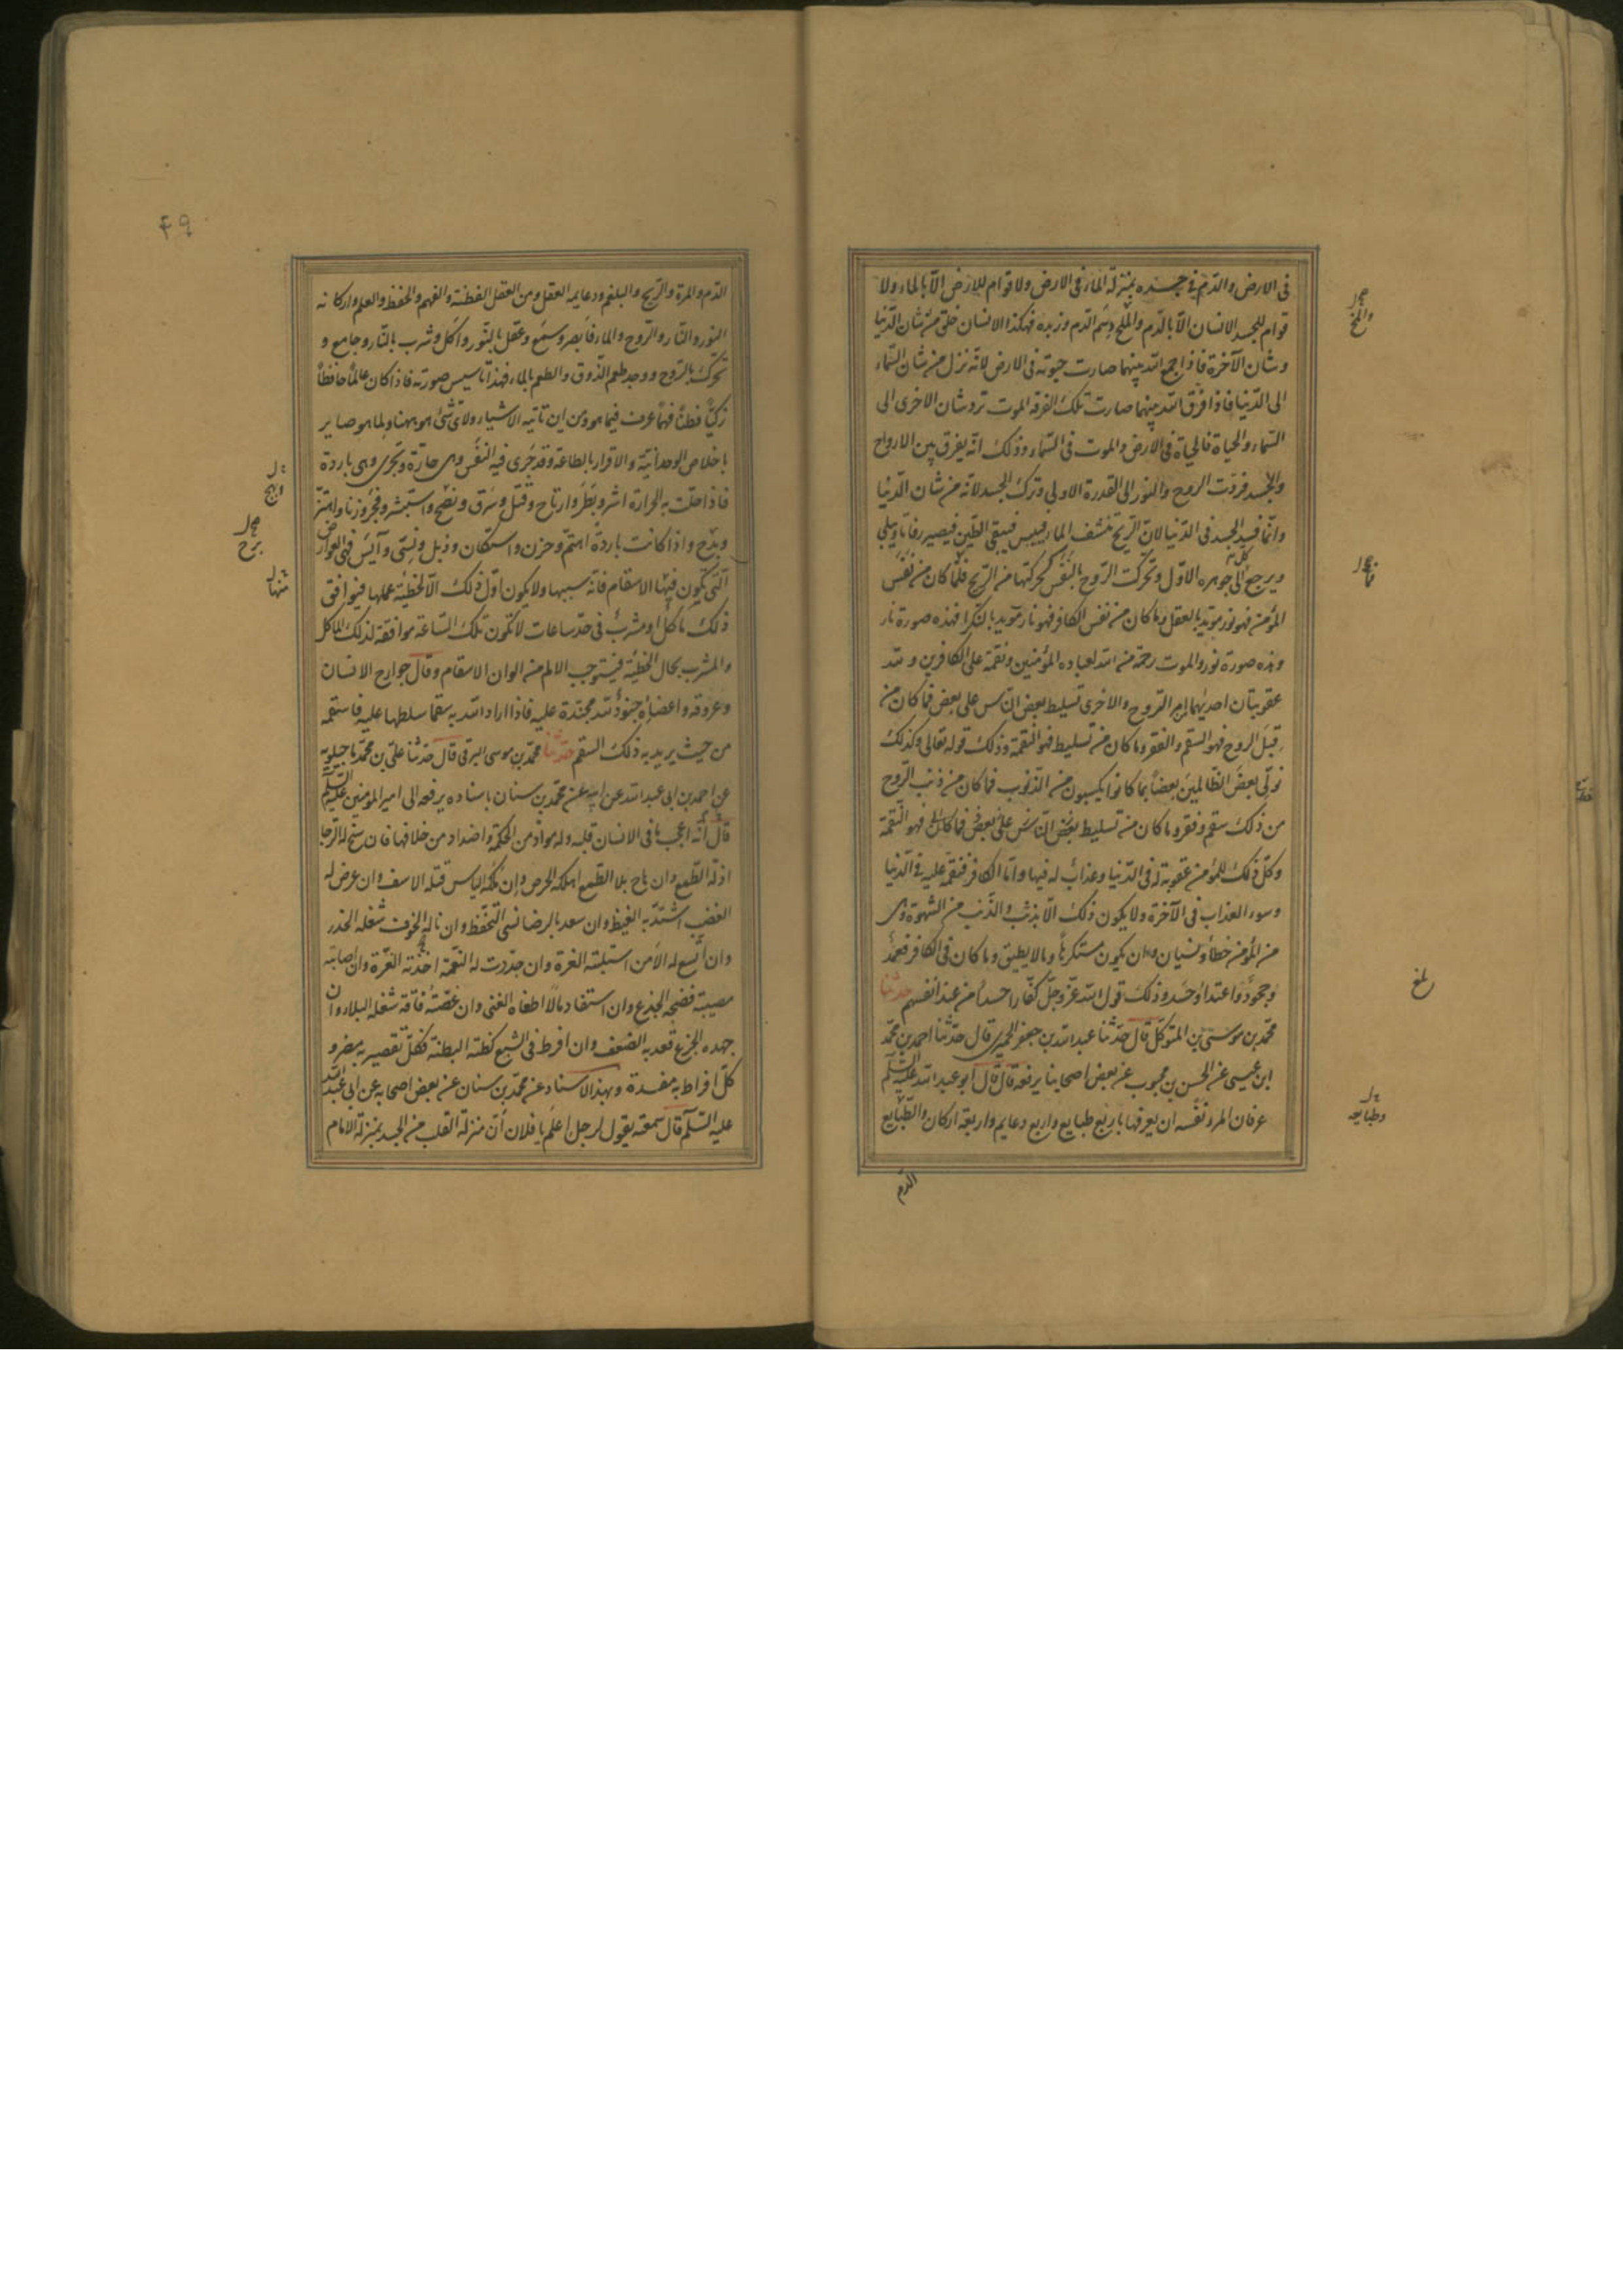 فى الارض والدّم فى جسده بمنزلة الماء فى الارض ولا قوام للارض الّا بالماء ولا
قوام للجسد الانسان الّا بالدّم والمخّ دسم الدّم وزبده فهكذا الانسان خلق من شان الدّنيا
وشان الآخرة فاذا جمع الله بينهما صارت حيوته فى الارض لانّه نزل من شان السّماء
الى الدّنيا فاذا فرّق الله بينهما صارت تلك الفرقة الموت ترد شان الاخرى الى
السّماء والحياة فالحياة فى الارض والموت فى السّماء وذلك انّه يفرق بين الارواح
والجسد فردّت الروح والنور الى القدرة الاولى وترك الجسد لانّه من شان الدّنيا
وانّما فسد الجسد فى الدّنيا لانّ الرّيح تنشف الماء فييبس فيبقى الطّين فيصير رفاتا ويبلى
ويرجع كلّ الى جوهره الاوّل وتحركت الرّوح بالنّفس كحركتها من الرّيح فلمّا كان من نفس
المؤمن فهو نور مؤيّد بالعقل وما كان من نفس الكافر فهو نار مؤيّد بالنّكرا فهذه صورة نار
وهذه صورة نور والموت رحمة من الله لعباده المؤمنين ونقمة على الكافرين ولله
عقوبتان احديهما امر الرّوح والاخرى تسليط بعض النّاس على بعض فما كان من
قبل الروح فهو السّقم والفقر وما كان من تسليط فهو النّقمة وذلك قوله تعالى وكذلك
نولّى بعض الظّالمين بعضا بما كانوا يكسبون من الذّنوب فما كان من ذنب الرّوح
من ذلك سقم وفقر وما كان من تسليط بعض النّاس على بعض فما كان فهو النّقمة
وكلّ ذلك للمؤمن عقوبة له فى الدّنيا وعذاب له فيها وامّا الكافر فنقمة عليه فى الدّنيا
وسوء العذاب فى الآخرة ولا يكون ذلك الّا بذنب والذّنب من الشهوة وهى
من المؤمن خطأ ونسيان وان يكون مستكرها وما لا يطيق وما كان فى الكافر فعمد
وجحود واعتداء وحسد وذلك قول الله عزّ وجلّ كفّارا حسدا من عند انفسهم حدثنا
محمّد بن موسى بن المتوكّل قال حدّثنا عبد الله بن جعفر الحميرى قال حدّثنا احمد بن محمّد
ابن عيسى عن الحسن بن محبوب عن بعض اصحابنا يرفعه قال قال ابو عبد الله عليه السّلام
عرفان المرء نفسه ان يعرفها باربع طبايع واربع دعايم واربعة اركان والطّبايع
الدّم
والمخ
بلغ
وطبايعه
49
الدّم والمرة والرّيح والبلغم ودعايمه العقل ومن العقل الفطنة والفهم والحفظ والعلم واركانه
النور والنّار والروح والماء فابصر وسمع وعقل بالنّور واكل وشرب بالنّار وجامع و
تحرّك بالرّوح ووجد طعم الذّوق والطعم بالماء فهذا تاسيس صورته فاذا كان عالما حافظا
زكيّا فطنا فهما عرف فيما هو ومن اين تاتيه الاشياء ولاىّ شئ هو ههنا ولما هو صاير
باخلاص الوحدانيّة والاقرار بالطاعة وقد جرى فيه النّفس وهى حارّة وتجرى وهى باردة
فاذا حلّت به الحرارة اشر وبطر وارتاح وقتل وسرق ونصح واستبشر وفجر وزنا واهتزّ
وبذخ واذا كانت باردة اهتمّ وحزن واستكان وذبل ونسى وآيس فهى العوارض
الّتى تكون فيها الاسقام فانّه سببها ولا يكون اوّل ذلك الّا لخطيئة عملها فيوافق
ذلك ماكل او مشرب فى حدّ ساعات لا تكون تلك السّاعة موافقة لذلك الماكل
والمشرب بحال الخطيّة فيستوجب الالم من الوان الاسقام وقال جوارح الانسان
وعروقه واعضاؤه جنود لله مجنّدة عليه فاذا اراد الله به سقما سلطها عليه فاسقمه
من حيث يريد به ذلك السّقم حدثنا محمّد بن موسى البرقى قال حدّثنا علىّ بن محمّد ماجيلويه
عن احمد بن ابى عبد الله عن ابيه عن محمّد بن سنان باسناده يرفعه الى امير المومنين عليه السّلام
قال انّه اعجب ما فى الانسان قلبه وله موادّ من الحكمة واضداد من خلافها فان سنح له الرّجا
اذلّه الطّمع وان هاج به الطّمع اهلكه الحرص وان ملكه الياس قتله الاسف وان عرض له
الغضب اشتدّ به الغيظ وان سعد بالرضا نسى التّحفّظ وان ناله الخوف شغله الحذر
وان اتّسع له الامن استلبته الغرة وان جدّدت له النعمة اخذته العزّة وان اصابته
مصيبة فضحه الجزع وان استفاد مالا اطغاه الغنى وان عضّته فاقة شغله البلاء وان
جهده الجزع قعد به الضعف وان افرط فى الشبع كظّته البطنة فكلّ تقصير به مضر و
كلّ افراط به مفسدة وبهذا الاسناد عن محمّد بن سنان عن بعض اصحابه عن ابى عبد الله
عليه السّلام قال سمعته يقول لرجل اعلم يا فلان انّ منزلة القلب من الجسد بمنزلة الامام